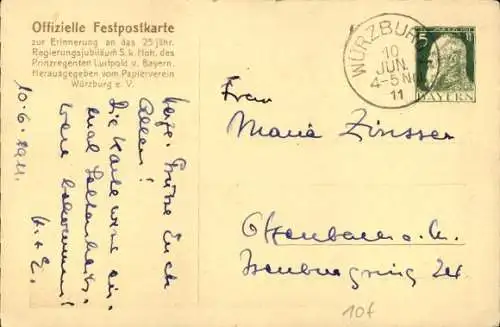 Offizielle Festpostkarte
zur Erinnerung an das 25 jähr.
Regierungsjubiläum S. k. Hoh. des
Prinzregenten Luitpold v. Bayern.
Herausgegeben vom Papierverein
Würzburg e. V.
WÜRZBURG
10
JUN.
4-5 N
11
5
BAYERN
10.6.1911.
Herzl. Grüße Euch
Allen!
Die Karte wird ein-
mal Seltenheits-
wert bekommen!
Frau
Maria Zinsser
Offenbach a. M.
Isenburgring
10f